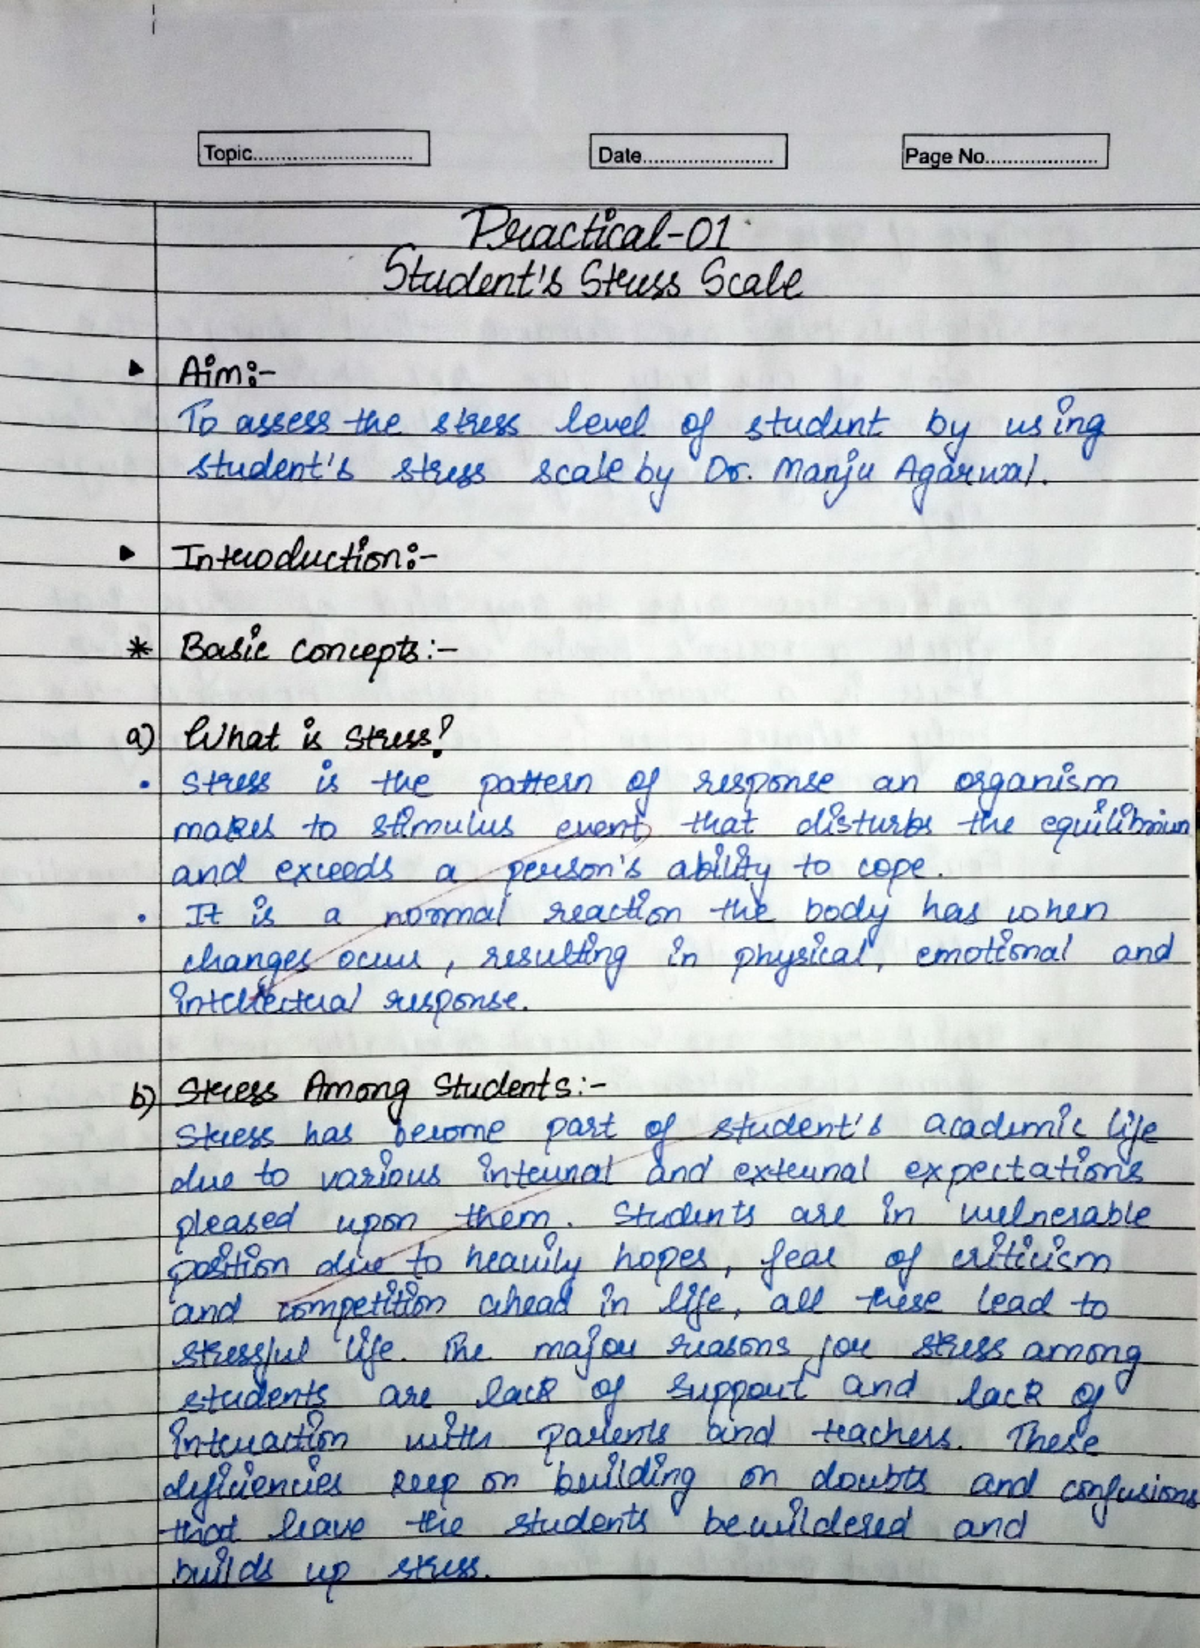 Topic............................ Date....................... Page No....................
Practical-01
Student's Stress Scale
▸ Aim:-
To assess the stress level of student by using
student's stress scale by Dr. Manju Agarwal.
▸ Introduction:-
* Basic concepts:-
a) What is Stress?
• Stress is the pattern of response an organism
makes to stimulus event, that disturbs the equilibrium
and exceeds a person's ability to cope.
• It is a normal reaction the body has when
changes occur, resulting in physical, emotional and
intellectual response.
b) Stress Among Students:-
Stress has become part of student's academic life
due to various internal and external expectations
pleased upon them. Students are in vulnerable
position due to heavily hopes, fear of criticism
and competition ahead in life, all these lead to
stressful life. The major reasons for stress among
students are lack of support and lack of
interaction with parents and teachers. These
deficiencies keep on building on doubts and confusions
that leave the students bewildered and
builds up stress.